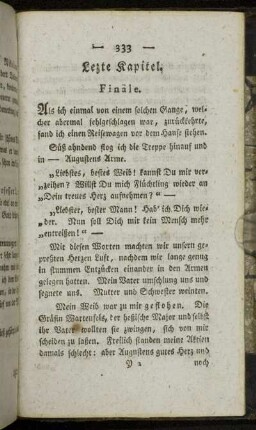 — 333 —
Lezte Kapitel.
Finale.
Als ich einmal von einem solchen Gange, wel-
cher abermal fehlgeschlagen war, zurückkehrte,
fand ich einen Reisewagen vor dem Hause stehen.
Süß ahndend flog ich die Treppe hinauf und
in — Augustens Arme.
„Liebstes, bestes Weib! kannst Du mir ver-
„zeihen? Willst Du mich Flüchtling wieder an
„Dein treues Herz aufnehmen?“ —
„Liebster, bester Mann! Hab' ich Dich wie-
„der. Nun soll Dich mir kein Mensch mehr
„entreißen!“ —
Mit diesen Worten machten wir unsern ge-
preßten Herzen Luft, nachdem wir lange genug
in stummen Entzücken einander in den Armen
gelegen hatten. Mein Vater umarmte uns und
segnete uns. Mutter und Schwester weinten.
Mein Weib war zu mir geflohen. Die
Gräfin Wartenfels, der hessische Major und selbst
ihr Vater wollten sie zwingen, sich von mir
scheiden zu lassen. Freilich standen meine Aktien
damals schlecht: aber Augustens gutes Herz und
Y 2
noch